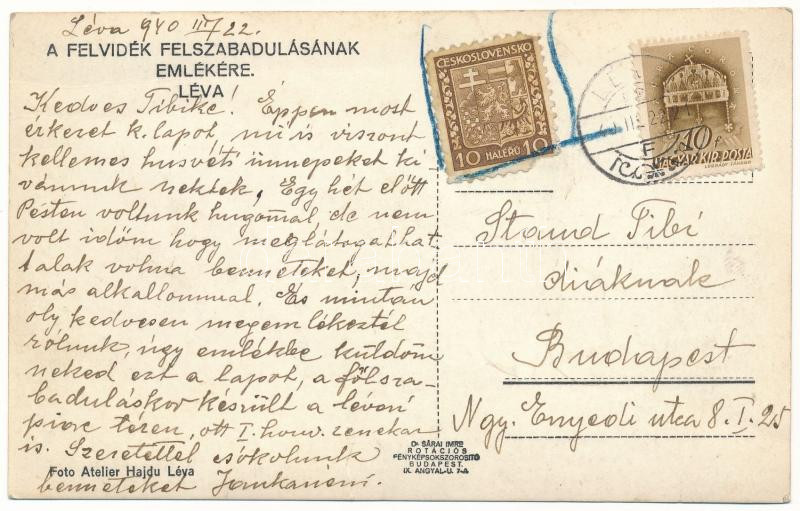 Léva 940 III/22.
A FELVIDÉK FELSZABADULÁSÁNAK
EMLÉKÉRE.
LÉVA
Kedves Tibiké! Éppen most
érkeret k. lapot, mi is viszont
kellemes husvéti ünnepeket ki-
vánunk nektek, Egy hét előtt
Pesten voltunk hugomal, de nem
volt időm hogy meglátogathat-
talak volna benneteket, majd
más alkallommal. És mintán
oly kedvesen megemlékeztél
rólunk, úgy emlékbe küldöm
neked ezt a lapot, a fölsza-
baduláskor készült a lévai
piac teren, ott I. honv. zenekar
is. Szeretettel csókolunk
benneteket Jankanéni.
Foto Atelier Hajdu Léva
Dr SÁRAI IMRE
ROTÁCIÓS
FÉNYKÉPSOKSZOROSITÓ
BUDAPEST.
IX. ANGYAL-U. 7-A
ČESKOSLOVENSKO
10 HALÉŘŮ 10
10 f
MAGYAR KIR. POSTA
LÉVA
Staud Tibi
diáknak
Budapest
Ngy. Enyedi utca 8. I. 25